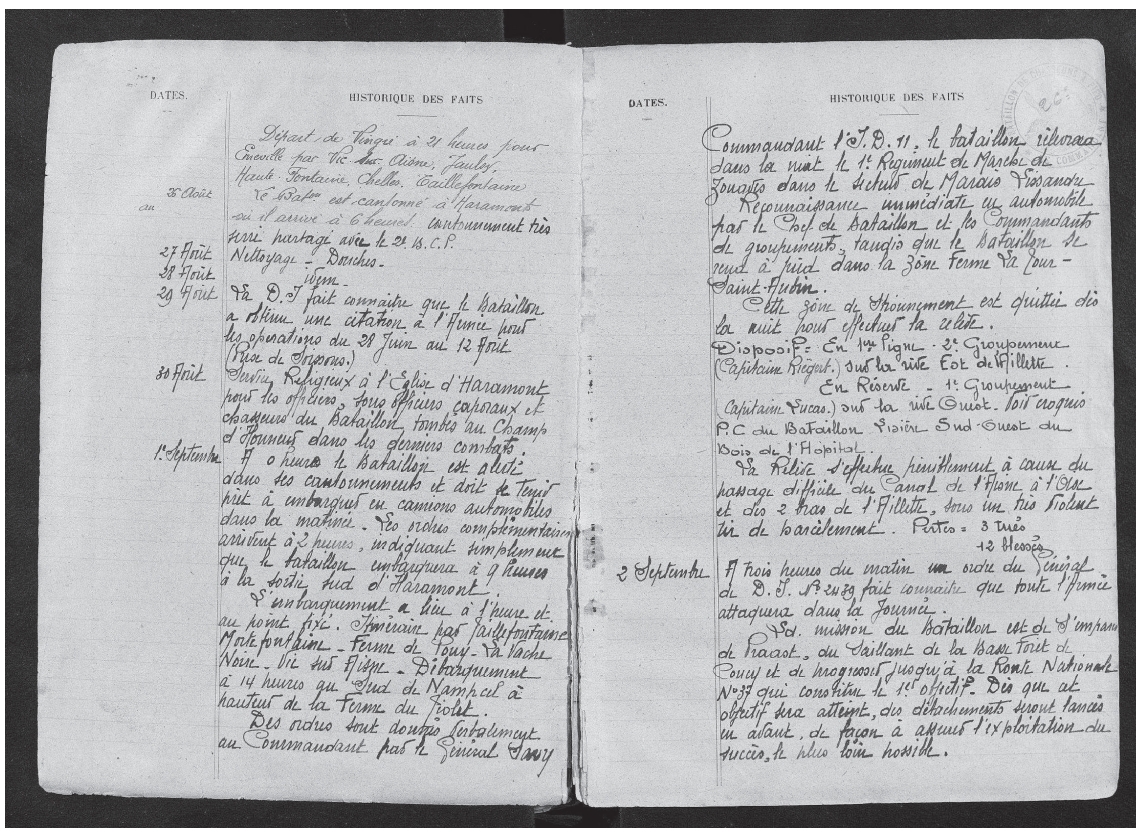 DATES.
HISTORIQUE DES FAITS
Départ de Vingré à 21 heures pour
Eméville par Vic sur Aisne, Jaulzy,
Haute Fontaine, Chelles, Taillefontaine
26 Août Le Baton est cantonné à Haramont
au où il arrive à 6 heures. cantonnement très
serré partagé avec le 2e B.C.P.
27 Août Nettoyage - Douches -
28 Août idem -
29 Août La D.I fait connaitre que le Bataillon
a obtenu une citation à l'Armée pour
les opérations du 28 Juin au 12 Août
(Prise de Soissons.)
30 Août Service Religieux à l'Eglise d'Haramont
pour les officiers, sous officiers, caporaux et
chasseurs du Bataillon, tombés au Champ
d'Honneur dans les derniers combats.
1er Septembre A 0 heure le Bataillon est alerté
dans ses cantonnements et doit se tenir
prêt à embarquer en camions automobiles
dans la matinée. Les ordres complémentaires
arrivent à 2 heures, indiquant simplement
que le bataillon embarquera à 9 heures
à la sortie sud d'Haramont.
L'embarquement a lieu à l'heure et
au point fixé. Itinéraire par Taillefontaine
Mortefontaine - Ferme de Pouy - La Vache
Noire - Vic sur Aisne - Débarquement
à 14 heures au Sud de Nampcel à
hauteur de la Ferme du Tiolet.
Des ordres sont donnés verbalement
au Commandant par le Général
DATES.
HISTORIQUE DES FAITS
Commandant l'I.D. 11, le bataillon relèvera
dans la nuit le 1er Régiment de Marche de
Zouaves dans le secteur de Marais
Reconnaissance immédiate en automobile
par le Chef de Bataillon et les Commandants
de groupements, tandis que le Bataillon se
rend à pied dans la zône Ferme La Tour -
Saint-Aubin.
Cette zône de Stationnement est quittée dès
la nuit pour effectuer la relève.
Dispositif = En 1ère Ligne - 2e Groupement
(Capitaine Riegert.) sur la rive Est de l'Ailette.
En Réserve - 1er Groupement
(Capitaine Lucas.) sur la rive Ouest. Voir croquis
P.C du Bataillon Lisière Sud-Ouest du
Bois de l'Hôpital.
La Relève s'effectue péniblement à cause du
passage difficile du Canal de l'Aisne à l'Oise
et des 2 bras de l'Ailette, sous un très violent
tir de harcèlement. Pertes = 3 tués
12 blessés
2 Septembre A trois heures du matin un ordre du Général
de D.I. No 2439 fait connaitre que toute l'Armée
attaquera dans la Journée.
La mission du Bataillon est de s'emparer
de Praast, du Saillant de la Basse Foret de
Coucy et de progresser jusqu'à la Route Nationale
No 37 qui constitue le 1er objectif. Dès que cet
objectif sera atteint, des détachements seront lancés
en avant, de façon à assurer l'exploitation du
succès, le plus loin possible.